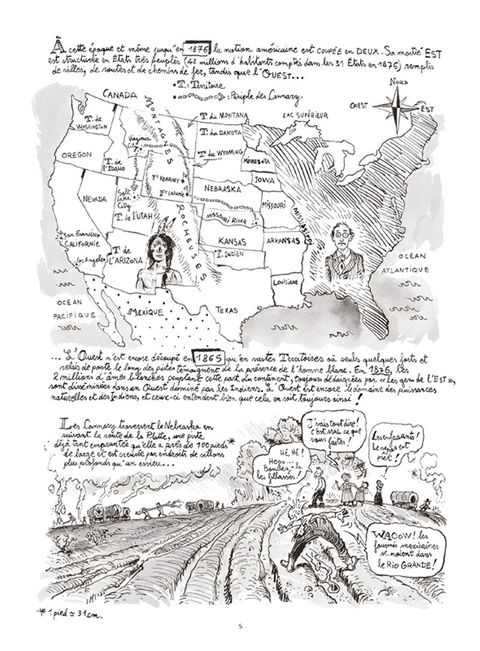 À cette époque et même jusqu'en 1876 la nation américaine est coupée en DEUX. Sa moitié EST
est structurée en États très peuplés (42 millions d'habitants comptés dans les 31 États en 1876) remplis
de villes, de routes et de chemins de fer, tandis que l'OUEST...
T. : Territoire
: Périple des Lannary
NORD
OUEST
EST
CANADA
LAC SUPÉRIEUR
MONTAGNES
ROCHEUSES
T. de WASHINGTON
T. du MONTANA
T. du DAKOTA
OREGON
T. de l'IDAHO
Virginia City
T. du WYOMING
MINNESOTA
Ft KEARNEY
Ft LARAMIE
IOWA
NEBRASKA
NEVADA
Salt Lake City
T. de l'UTAH
MISSOURI RIVER
MISSOURI
MISSISSIPI
San Francisco
CALIFORNIE
Los Angeles
KANSAS
ARKANSAS
T. INDIEN
T. de L'ARIZONA
LOUISIANE
OCÉAN
ATLANTIQUE
OCÉAN
PACIFIQUE
MEXIQUE
TEXAS
... L'Ouest n'est encore découpé en 1865 qu'en vastes Territoires où seuls quelques forts et
relais de poste le long des pistes témoignent de la présence de l'homme blanc. En 1876, les
2 millions d'âmes blanches peuplant cette part du continent, toujours désignées par «les gens de l'EST»,
sont disséminées dans un Ouest dominé par les Indiens. L'Ouest est encore le domaine des puissances
naturelles et des Indiens, et ceux-ci entendent bien que cela en soit toujours ainsi !
Les Lannary traversent le Nebraska en
suivant la route de la Platte, une piste
déjà tant empruntée qu'elle a près de 100 pieds*
de large et est creusée par endroits de sillons
plus profonds qu'un essieu...
HÉ, HÉ !
Hop...
Boulez-là
les fillasses !
J'vais tout dire !
C'est sale ce que
vous faites !
Les enfaaants !
Le repas est
prêt !
WAOOW ! les
fourmis mexicaines
se noient dans
le RIO GRANDE !
* 1 pied ≃ 31 cm.
5